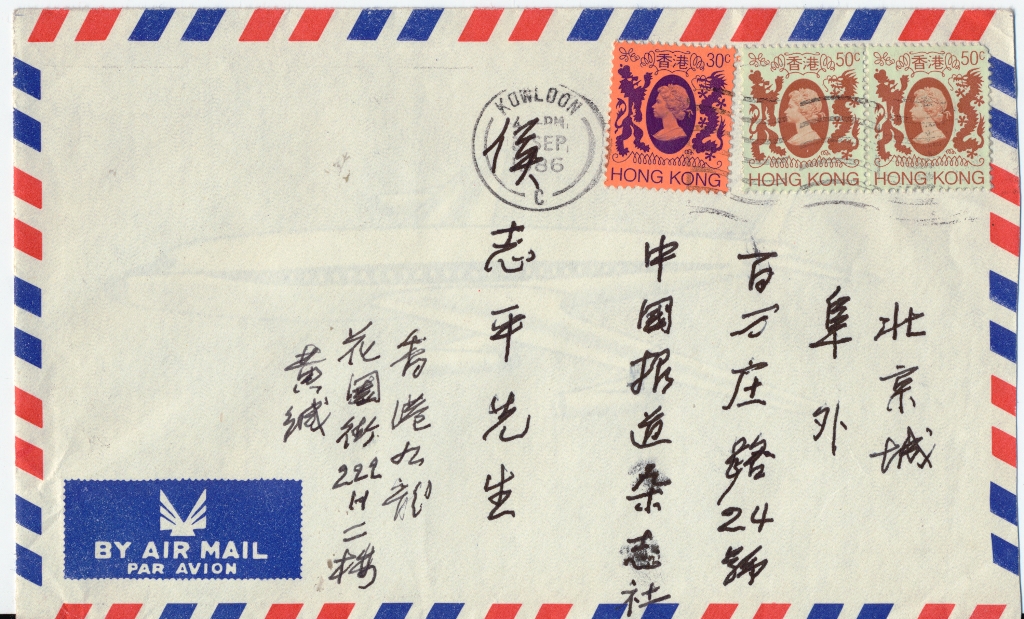 KOWLOON
PM
SEP
86
C
30c
香港
HONG KONG
50c
香港
HONG KONG
50c
香港
HONG KONG
北京城
阜外
百万庄路24號
中国报道杂志社
侯志平先生
香港九龍
花園街222H二楼
黄缄
BY AIR MAIL
PAR AVION